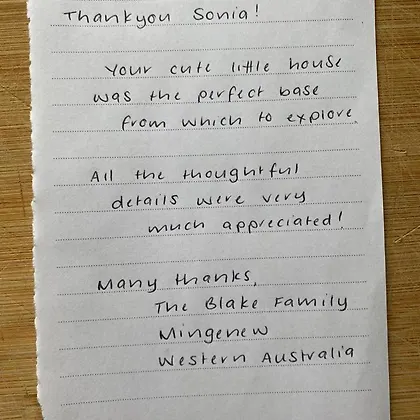 Thankyou Sonia!
Your cute little house
was the perfect base
from which to explore.
All the thoughtful
details were very
much appreciated!
Many thanks,
The Blake Family
Mingenew
Western Australia